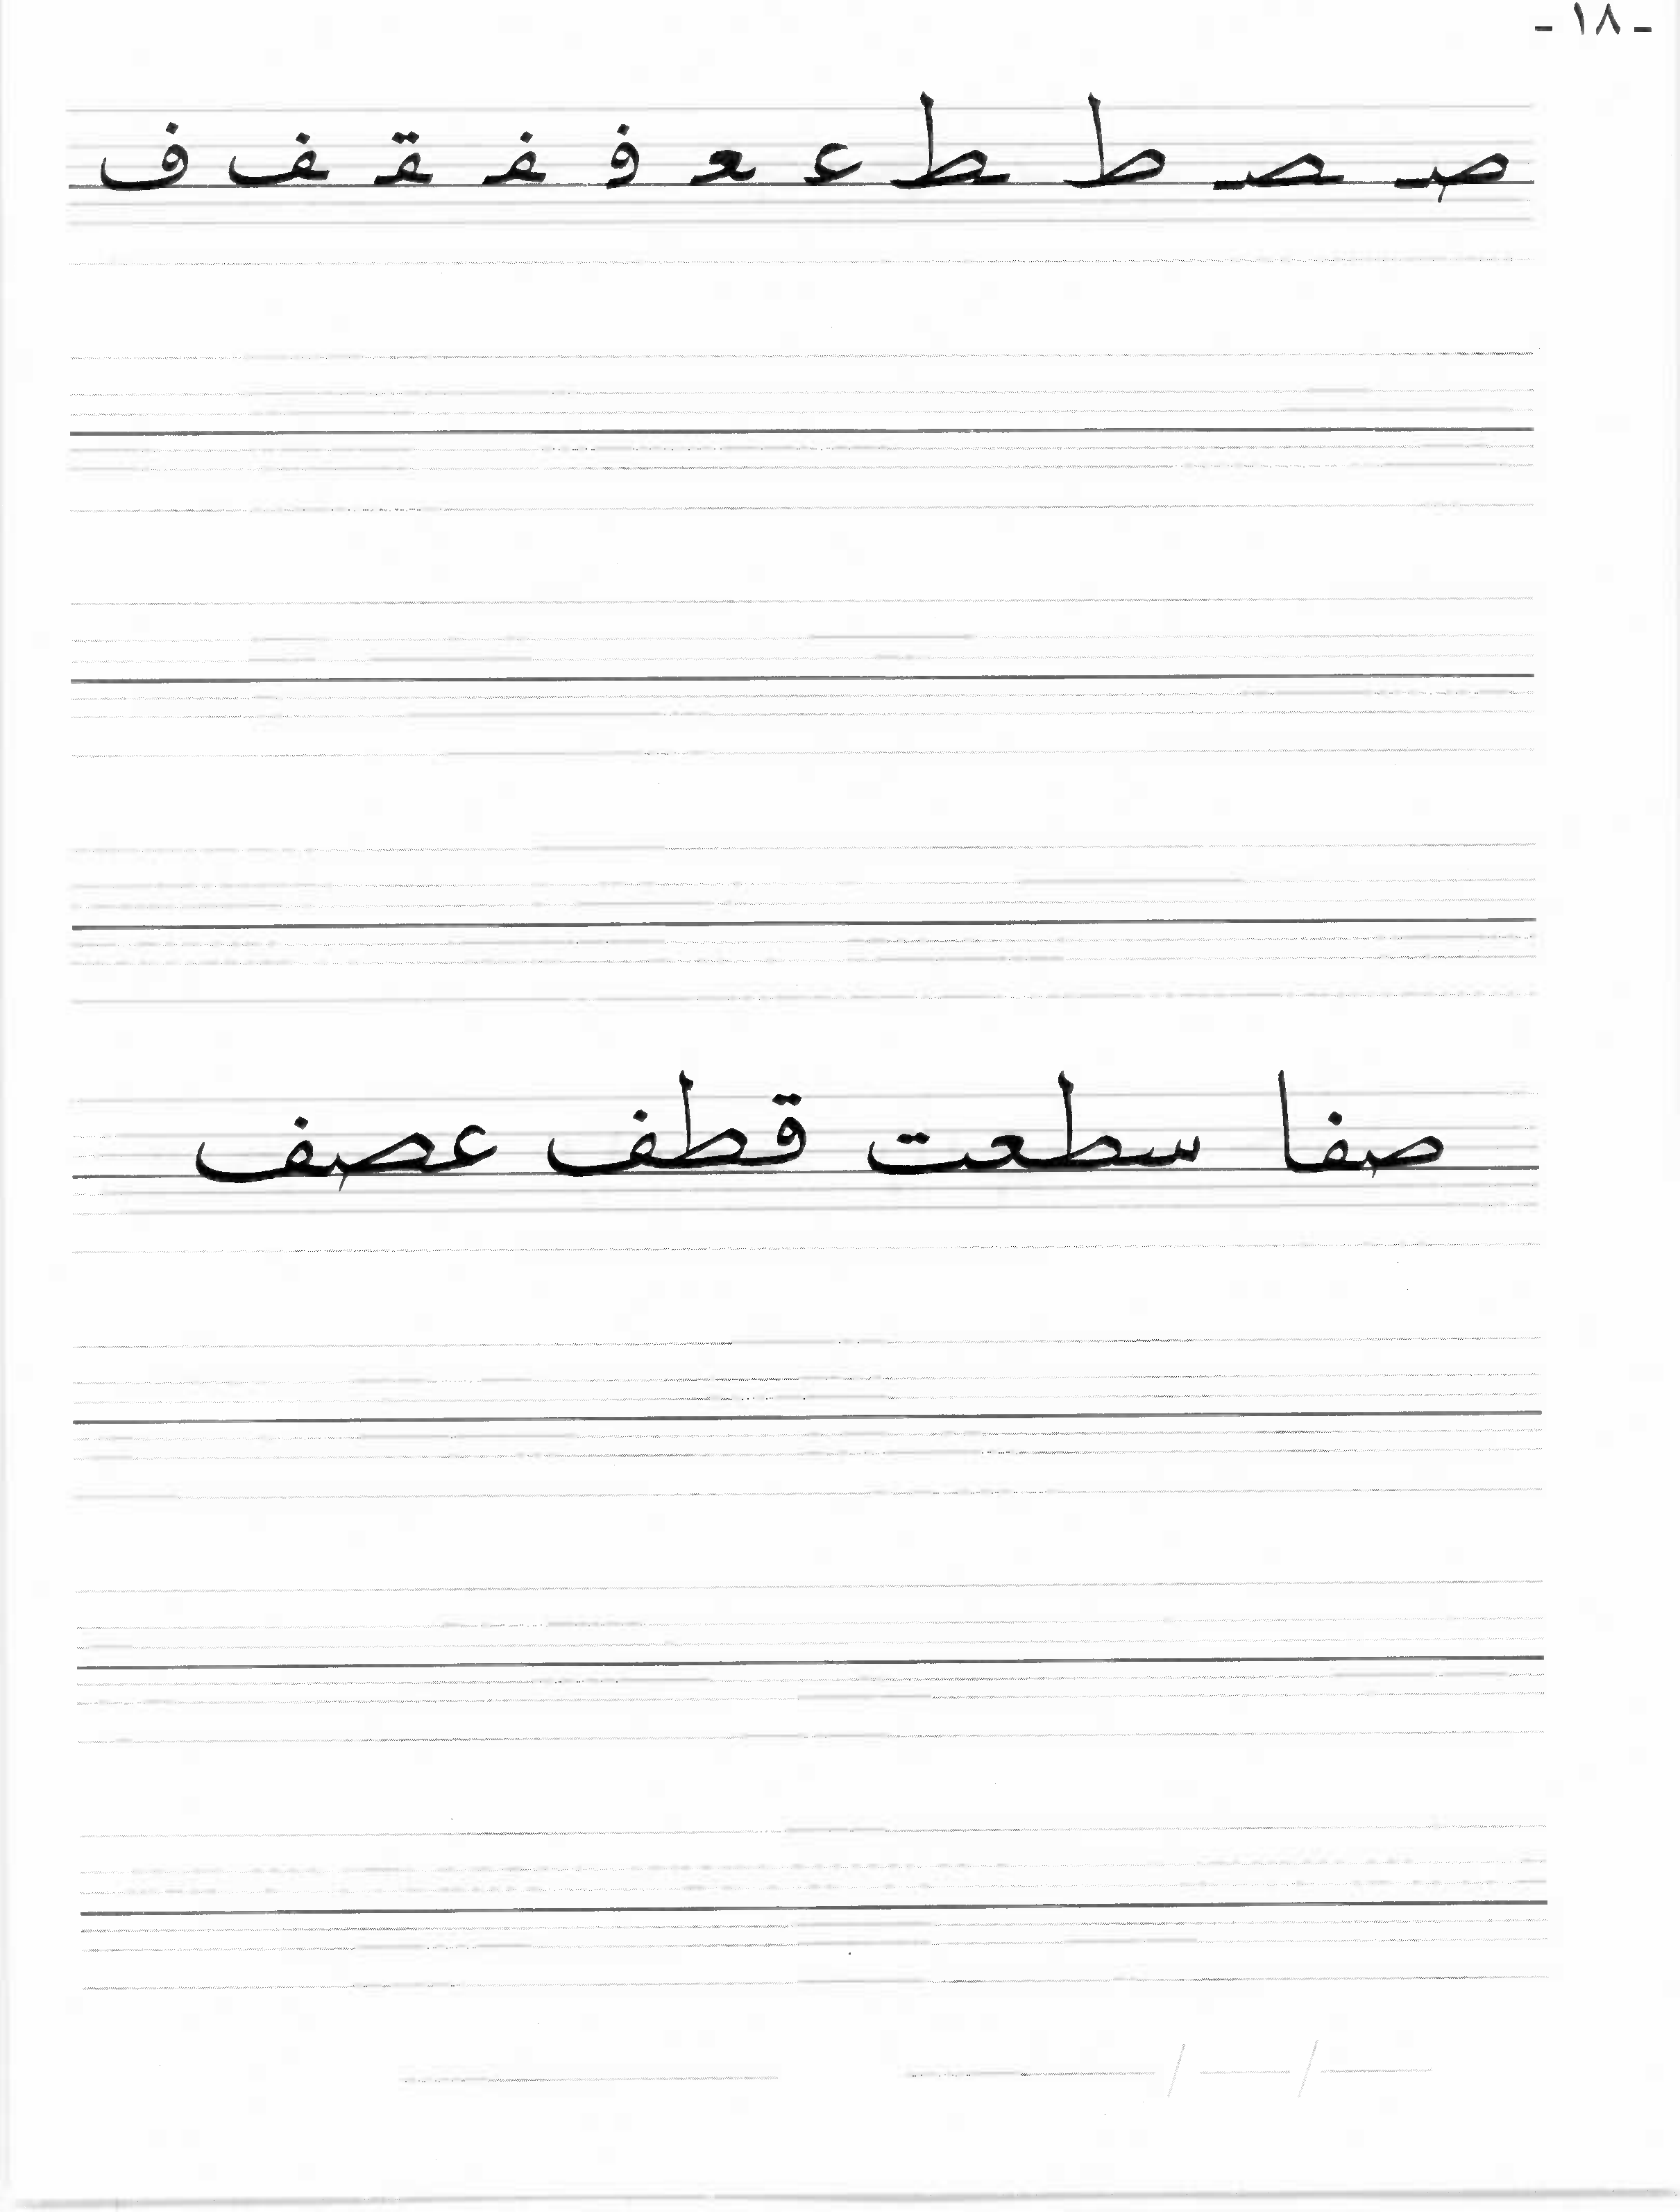 - ١٨ -
صـ ـصـ ط ـط عـ ـعـ فـ ـفـ ـقـ ـف ف
صفا سطعت قطف عصف